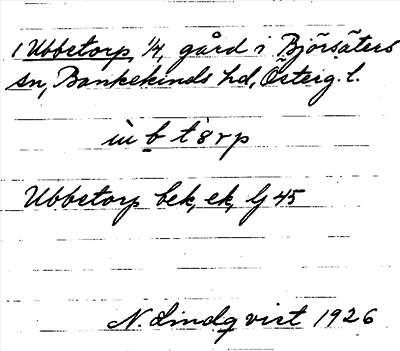 1 Ubbetorp 1/4, gård i Björsäters
sn, Bankekinds hd, Österg. l.
ùb t`ɜrp
Ubbetorp bek, ek, lj 45
N. Lindqvist 1926